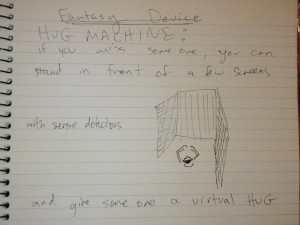 Fantasy Device
HUG MACHINE:
if you miss some one, you can
stand in front of a few screens
with sense detectors
and give some one a virtual HUG